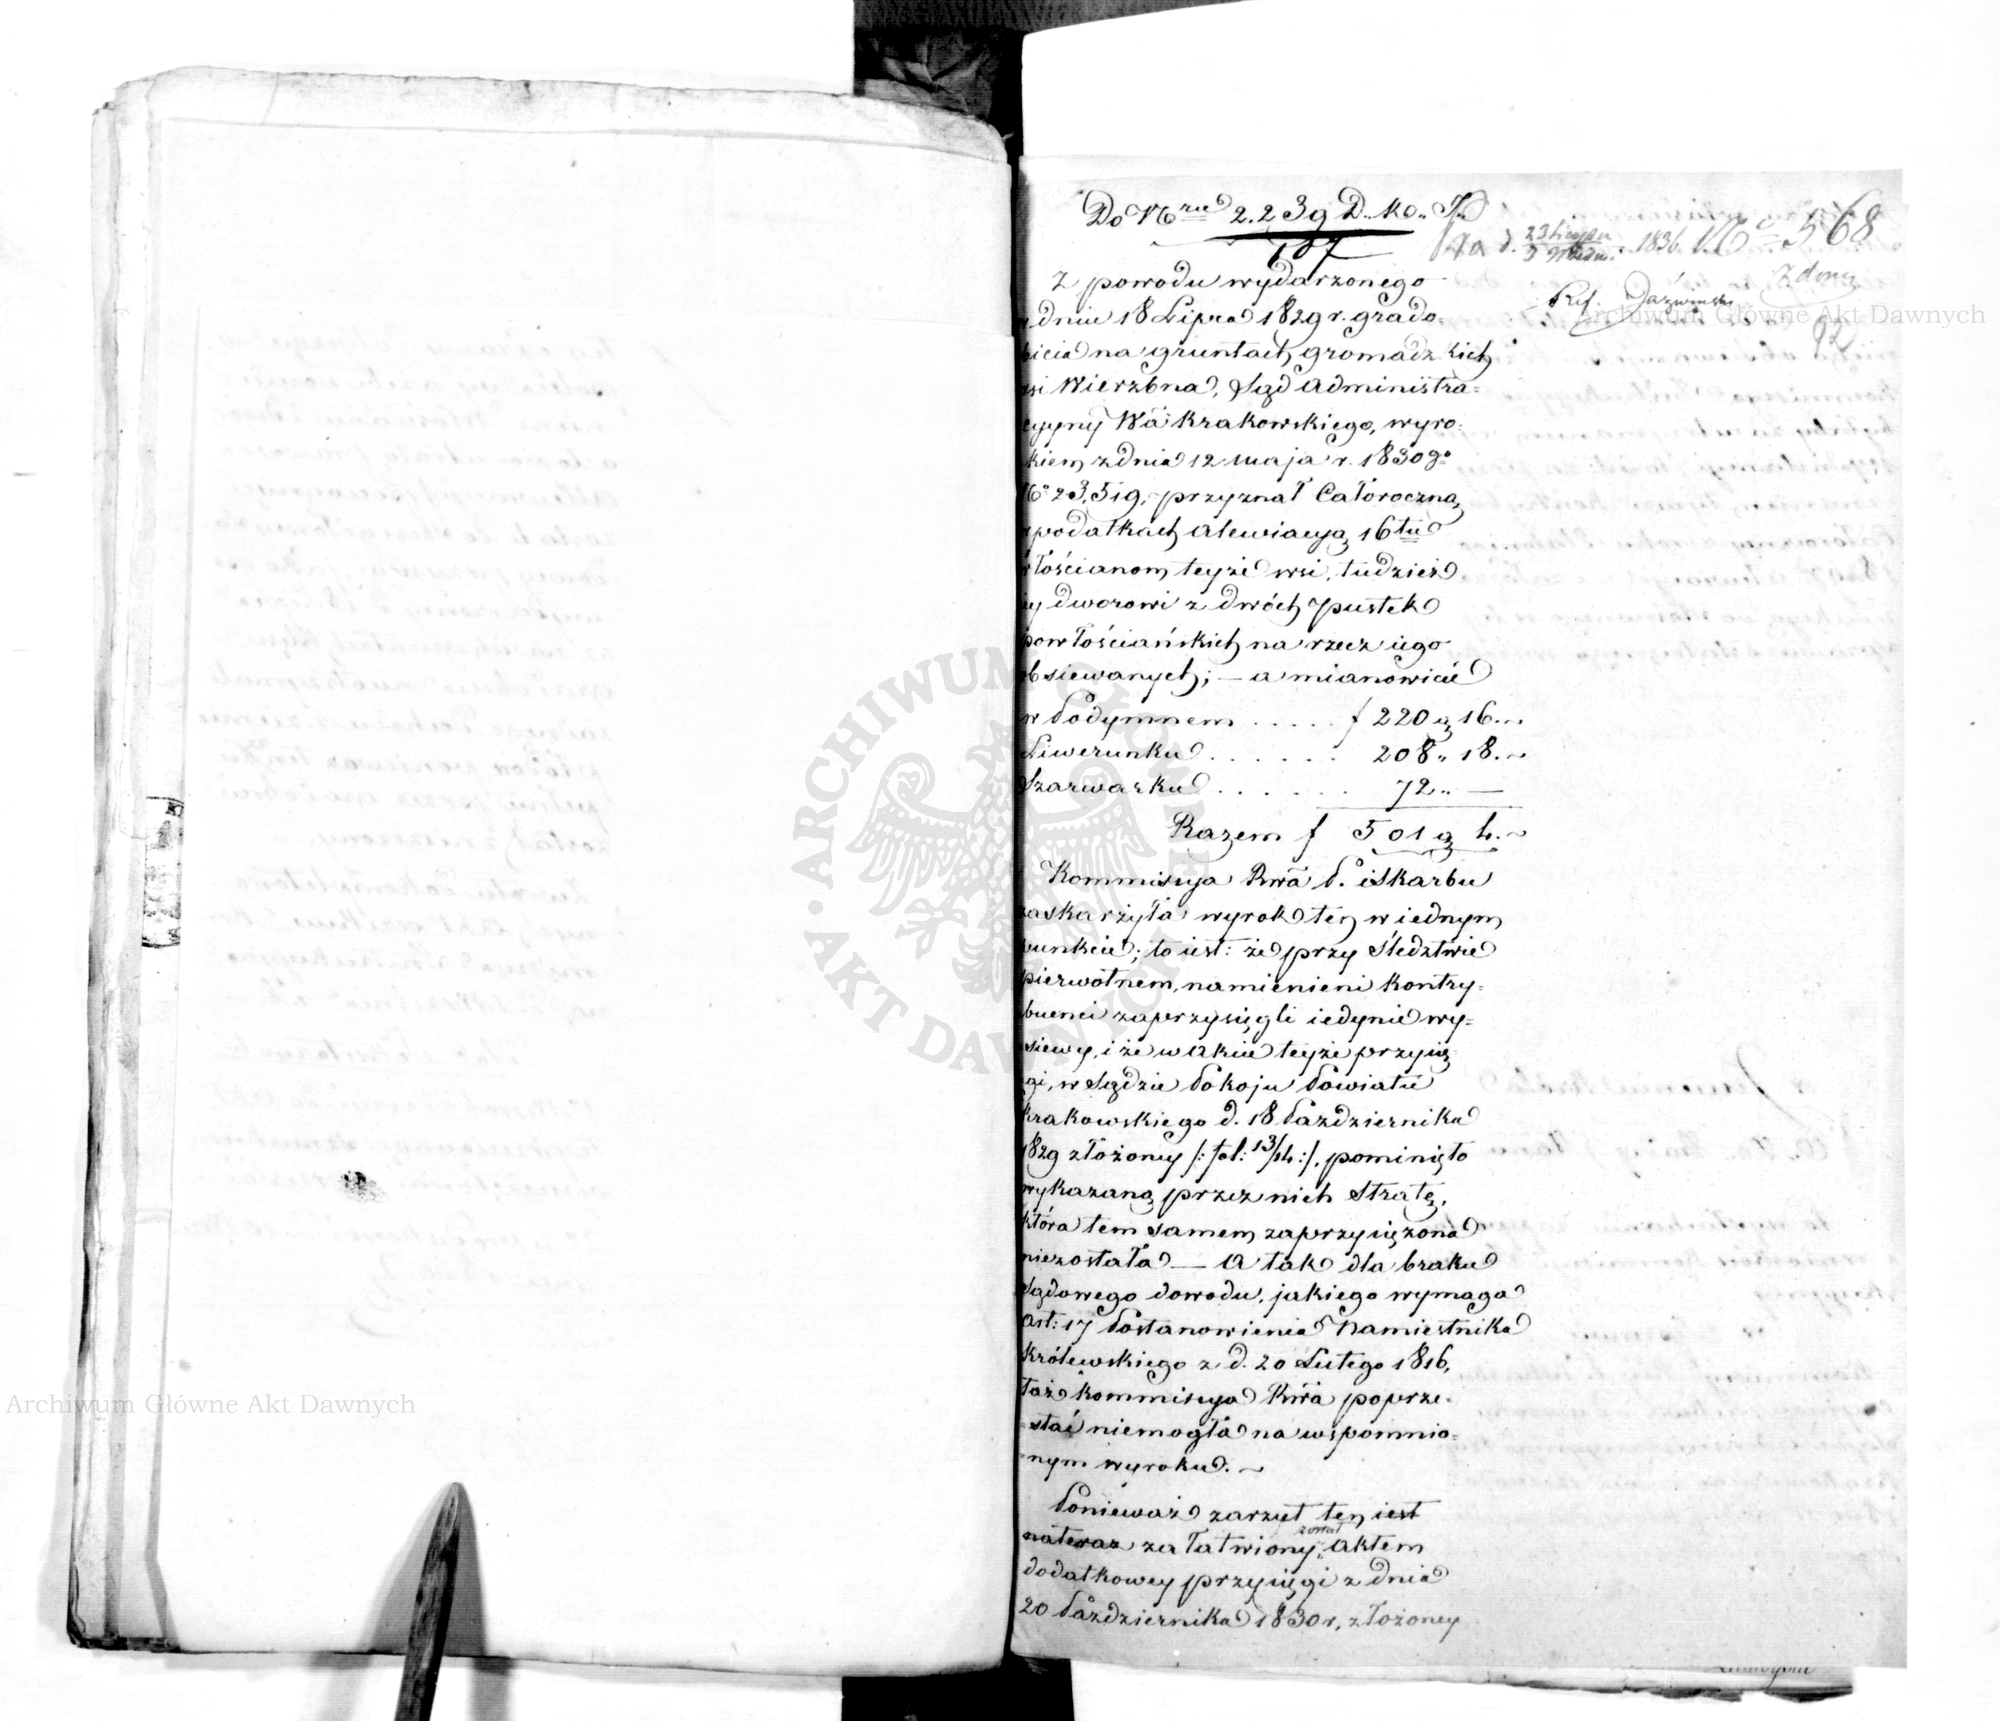 Do Nru 2.239 D. K. S.
107
Na d. 23 Lipca 1836 No 568
3
Ref.
92
Z powodu wydarzonego
w dniu 18 Lipca 1829 r. grado-
bicia na gruntach gromadzkich
wsi Wierzbna, Sąd Administra-
cyyny Wa Krakowskiego, wyro-
kiem z dnia 12 maja r. 1830 go
No 23,519, przyznał Całoroczną
w podatkach alewiacyą 16tu
włościanom teyże wsi, tudzież
iey dworowi z dwóch pustek
powłościańskich na rzecz iego
obsiewanych; — a mianowicie
w Podymnem . . . . . f 220 g 16. ~
Liwerunku . . . . . . 208 „ 18. ~
Szarwarku . . . . . . 72 „ —
Razem f 501 g 4. ~
Kommissya Rwa P. i Skarbu
zaskarżyła wyrok ten w iednym
punkcie; to iest: że przy śledztwie
pierwotnem, namienieni kontry-
buenci zaprzysięgli iedynie wy-
siewy, i że w akcie teyże przysię-
gi, w Sądzie Pokoju Powiatu
Krakowskiego d. 18 Października
1829 złożoney /: fol: 13/14 :/, pominięto
wykazaną przez nich stratę,
która tem samem zaprzysiężona
niezostała — A tak dla braku
Sądowego dowodu, jakiego wymaga
Art: 17 Postanowienia Namiestnika
Królewskiego z d. 20 Lutego 1816,
taż Kommissya Rwa poprze-
stać niemogła na wspomnio-
nym wyroku. ~
Ponieważ zarzut ten iest
nateraz załatwiony został aktem
dodatkowey przysięgi z dnia
20 Października 1830 r, złożoney
Archiwum Główne Akt Dawnych
Archiwum Główne Akt Dawnych
ARCHIWUM GŁÓWNE AKT DAWNYCH